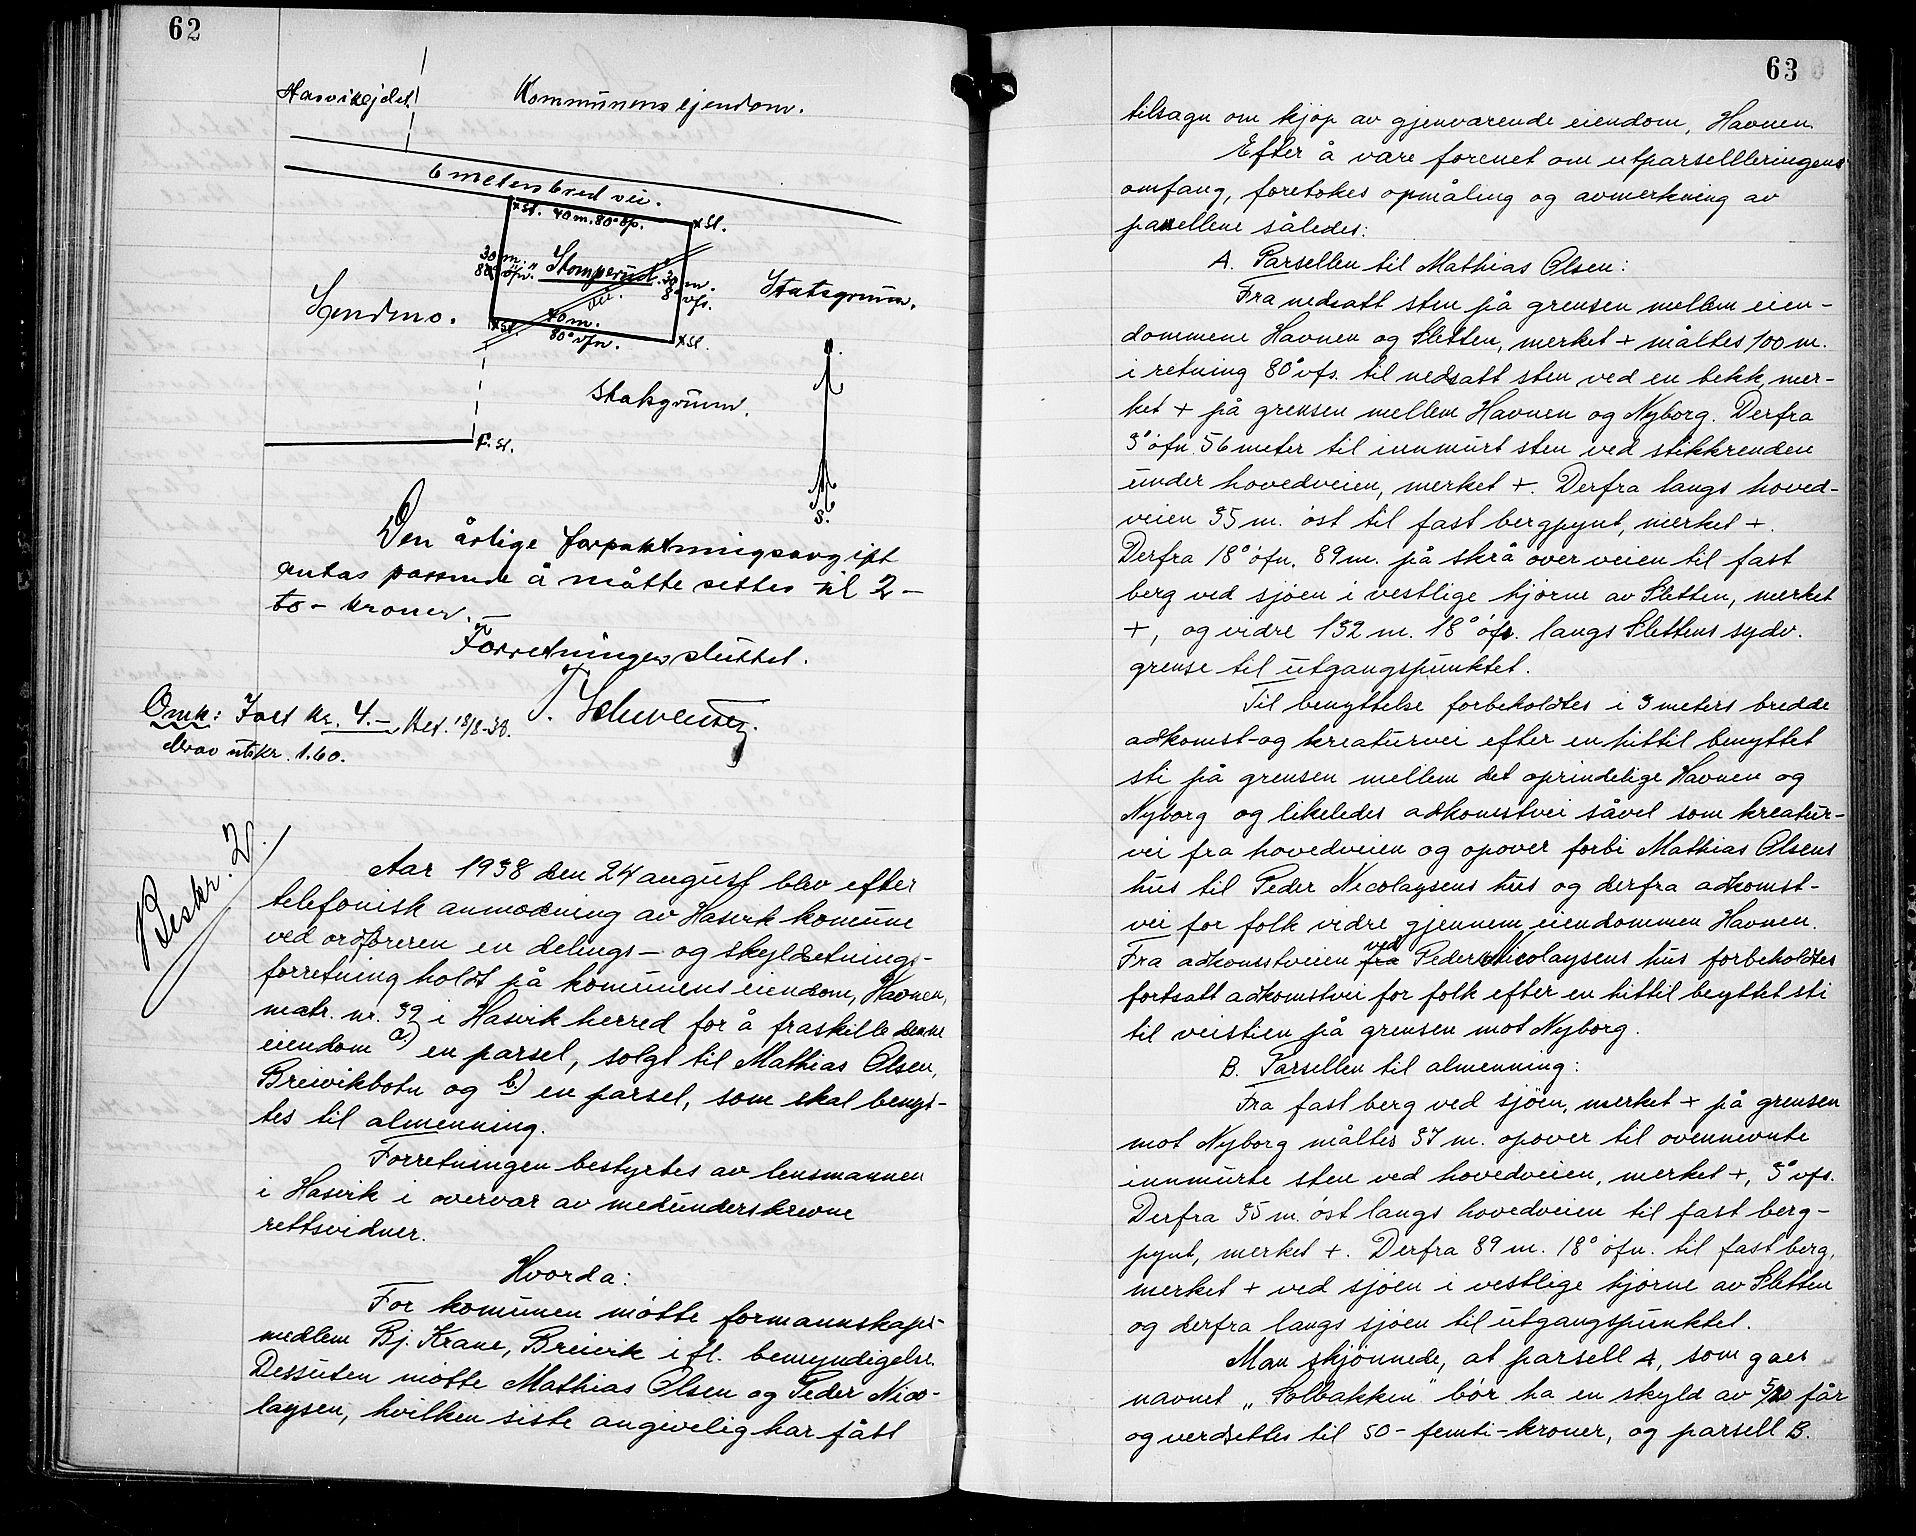 62
Hasvikejdet
Kommunens ejendom.
6 meters bred vei.
xSt. 40 m. 80° öfs.
xSt.
30 m.
8° öfn.
"Stomperud"
30 m.
8° vfs.
vei.
Statsgrunn.
Sendmo.
40 m.
xSt.
80° vfn.
xSt.
Statsgrunn.
F. St.
S.
Den årlige forpaktningsavgift
antas passende å måtte settes til 2 –
to – kroner. –
Forretningen sluttet.
Omk: Fort kr. 4.– Bet. 18/8-38.
derav utskr. 1.60.
Beskr. 2.
Aar 1938 den 24 august blev efter
telefonisk anmodning av Hasvik komune
ved ordföreren en delings – og skyldsetnings-
forretning holdt på komunens eiendom, Havnen,
matr. nr. 39 i Hasvik herred for å fraskille denne
eiendom a) en parsel, solgt til Mathias Olsen,
Breivikbotn og b) en parsel, som skal benyt-
tes til almenning.
Forretningen bestyrtes av lensmannen
i Hasvik i overvær av medunderskrevne
rettsvidner.
Hvorda:
For komunen mötte formannskaps-
medlem Bj. Krane, Breivik ifl. bemyndigelse.
Dessuten mötte Mathias Olsen og Peder Nico-
laysen, hvilken siste angivelig har fått
63
tilsagn om kjöp av gjenværende eiendom, Havnen.
Efter å være forenet om utparselleringens
omfang, foretokes opmåling og avmerkning av
parsellene således:
A. Parsellen til Mathias Olsen:
Fra nedsatt sten på grensen mellem eien-
dommene Havnen og Sletten, merket + måltes 100 m.
i retning 80° vfs. til nedsatt sten ved en bekk, mer-
ket + på grensen mellem Havnen og Nyborg. Derfra
3° öfn 56 meter til innmurt sten ved stikkrenden
under hovedveien, merket +. Derfra langs hoved-
veien 35 m. öst til fast bergpynt, merket +.
Derfra 18° öfn. 89 m. på skrå over veien til fast
berg ved sjöen i vestlige hjörne av Sletten, merket
+, og vidre 132 m. 18° öfs. langs Slettens sydv.
grense til utgangspunktet.
Til benyttelse forbeholdtes i 3 meters bredde
adkomst-og kreaturvei efter en hittil benyttet
sti på grensen mellem det oprindelige Havnen og
Nyborg og likeledes adkomstvei såvel som kreatur-
vei fra hovedveien og opover forbi Mathias Olsens
hus til Peder Nicolaysens hus og derfra adkomst-
vei for folk vidre gjennem eiendommen Havnen.
Fra adkomstveien fra ved Peder Nicolaysens hus forbeholdtes
fortsatt adkomstvei for folk efter en hittil benyttet sti
til veistien på grensen mot Nyborg.
B. Parsellen til almenning:
Fra fast berg ved sjöen, merket + på grensen
mot Nyborg måltes 37 m. opover til ovennevnte
innmurte sten ved hovedveien, merket +, 3° vfs.
Derfra 35 m. öst langs hovedveien til fast berg-
pynt, merket +. Derfra 89 m. 18° öfn. til fast berg,
merket + ved sjöen i vestlige hjörne av Sletten
og derfra langs sjöen til utgangspunktet.
Man skjönnede, at parsell A, som gaes
navnet „Solbakken" bör ha en skyld av 5/20 får
og verdsettes til 50 – femti – kroner, og parsell B.